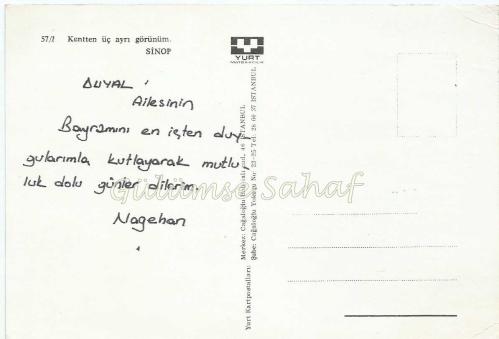 57/1 Kentten üç ayrı görünüm.
SİNOP
YURT
MATBAACILIK
DUYAL '
Ailesinin
Bayramını en içten duy
gularımla kutlayarak mutlu,
luk dolu günler dilerim.
Nagehan
Gülümse Sahaf
Yurt Kartpostalları:
Merkez: Cağaloğlu
46 İSTANBUL
Şube: Cağaloğlu Yokuşu No: 23-25 Tel: 26 60 27 İSTANBUL